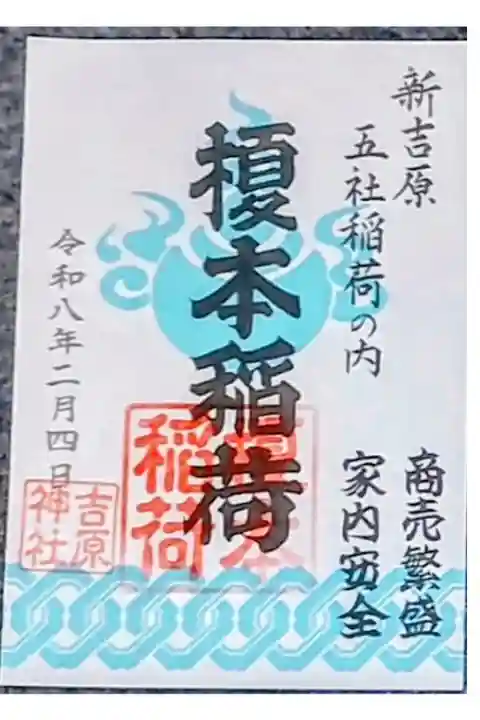 新吉原
五社稲荷の内
商売繁盛
家内安全
榎本稲荷
稲荷
令和八年二月四日
吉原
神社